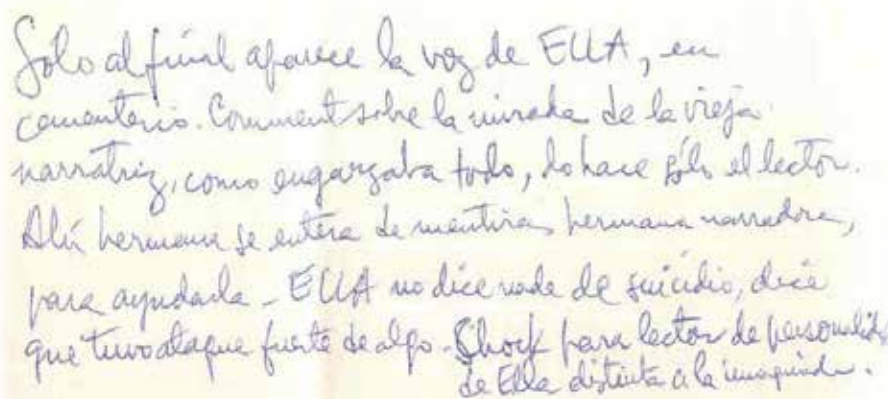 Sólo al final aparece la voz de ELLA, en
cementerio. Comment sobre la mirada de la vieja
narratriz, como engarzaba todo, lo hace sólo el lector.
Ahí hermana se entera de mentiras hermana narradora,
para ayudarla - ELLA no dice nada de suicidio, dice
que tuvo ataque fuerte de algo. Shock para lector de personalid
de Ella distinta a la imaginada.